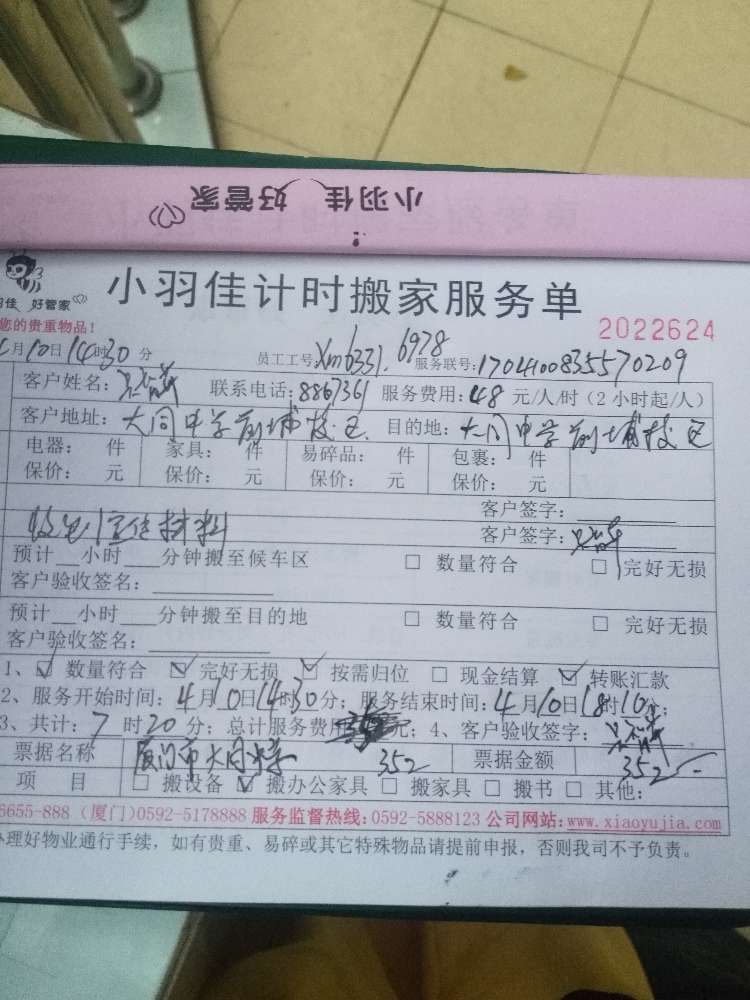 小羽佳 好管家
小羽佳计时搬家服务单
佳 好管家
您的贵重物品!
2022624
月10日14时30分 员工工号:Xm6331.6978 服务联号:1704100835570209
客户姓名: 联系电话:8867361 服务费用:48元/人/时(2小时起/人)
客户地址:大同中学前埔校区 目的地:大同中学前埔校区
电器: 件 家具: 件 易碎品: 件 包裹: 件
保价: 元 保价: 元 保价: 元 保价: 元
客户签字:
材料 客户签字:
预计__小时___分钟搬至候车区 □ 数量符合 □ 完好无损
客户验收签名:
预计__小时___分钟搬至目的地 □ 数量符合 □ 完好无损
客户验收签名:
1、☑ 数量符合 ☑ 完好无损 ☑ 按需归位 □ 现金结算 ☑ 转账汇款
2、服务开始时间:4月10日14时30分;服务结束时间:4月10日18时10分;
3、共计:7时20分;总计服务费用 元;4、客户验收签字:
352
票据名称 厦门市大同中学 票据金额 352
项 目 □ 搬设备 ☑ 搬办公家具 □ 搬家具 □ 搬书 □ 其他:
6655-888 (厦门)0592-5178888 服务监督热线:0592-5888123 公司网站:www.xiaoyujia.com
办理好物业通行手续,如有贵重、易碎或其它特殊物品请提前申报,否则我司不予负责。